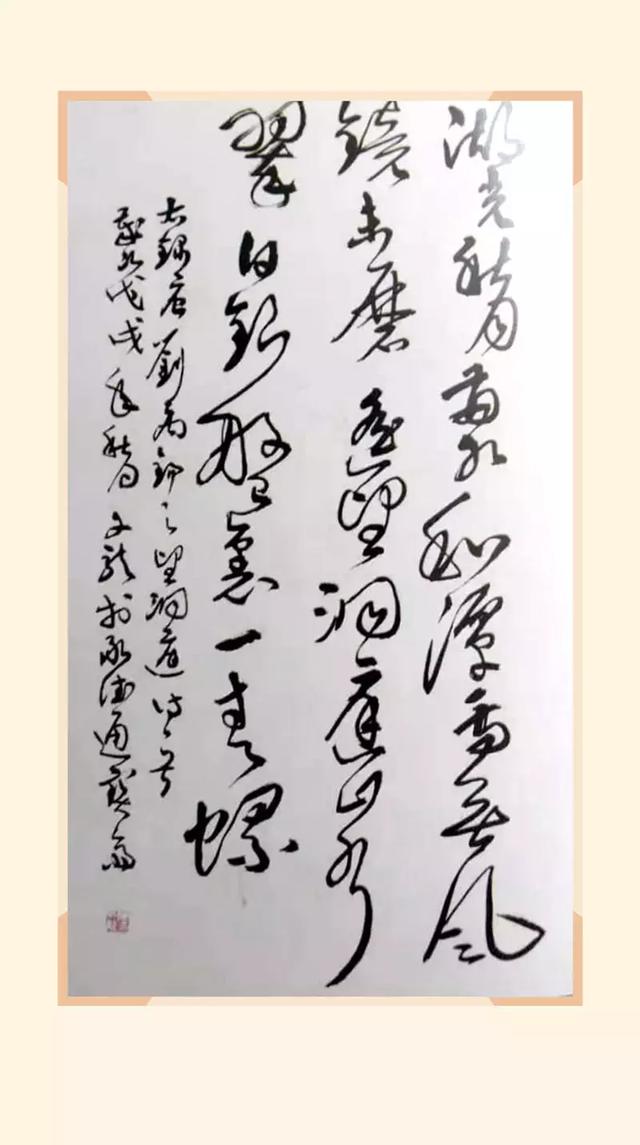 湖光秋月兩相和潭面無風
鏡未磨遙望洞庭山水
翠白銀盤裏一青螺
右錄唐劉禹錫之望洞庭詩一首
歲次戊戌年秋月文龍於永德通寶齋